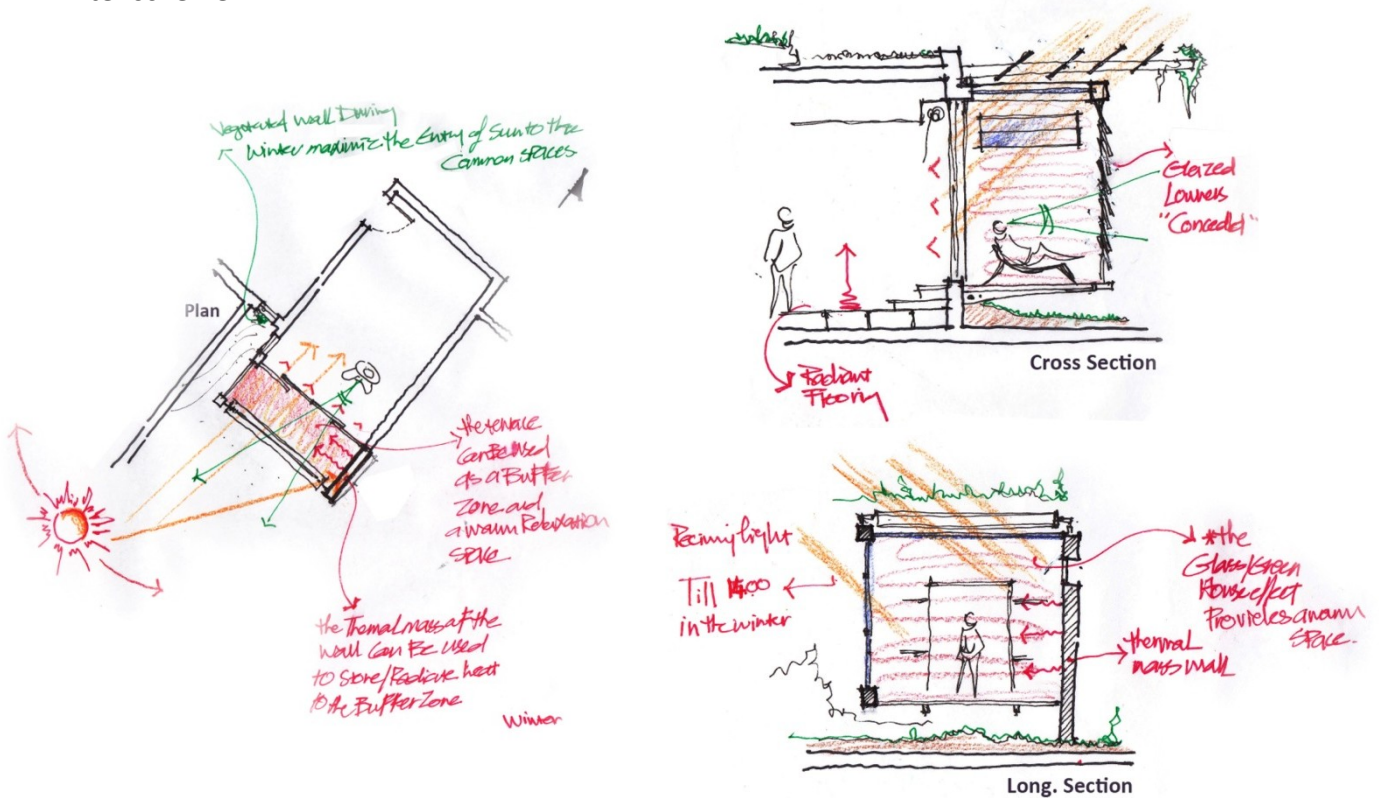 Vegetated wall During
Winter maximize the Entry of Sun to the
Common spaces
Plan
the terrace
Can Be used
as a Buffer
Zone and
a warm Relaxation
Space
the Thermal mass of the
wall Can Be used
to Store/Radiate heat
to the Buffer Zone
Winter
Glazed
Louvers
"Concedled"
Radiant
Flooring
Cross Section
Reciving light
Till 14:00
in the winter
*the
Glass/Green
House effect
Provides a warm
Space.
thermal
mass wall
Long. Section